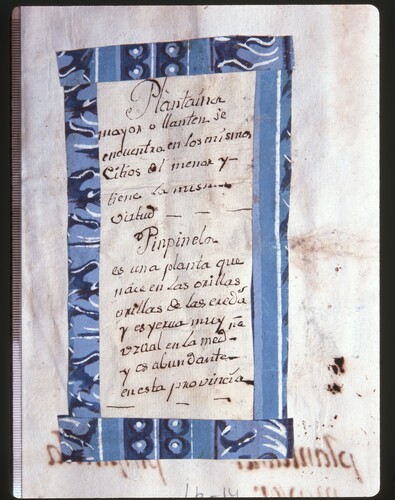 Plantaina
mayor o llanten se
encuentra en los mismos
Citios el menor y
tiene la misma
virtud
Pinpinela
es una planta que
náce en las orillas
orillas de las
y es yerva muy
en la med
y es abundante
en esta provincia